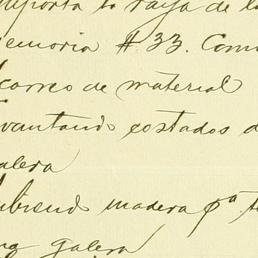 mporta la raya de la
emoria # 33. Com
correo de material
vantando costados d
alera
ubriend madera pª t
galera